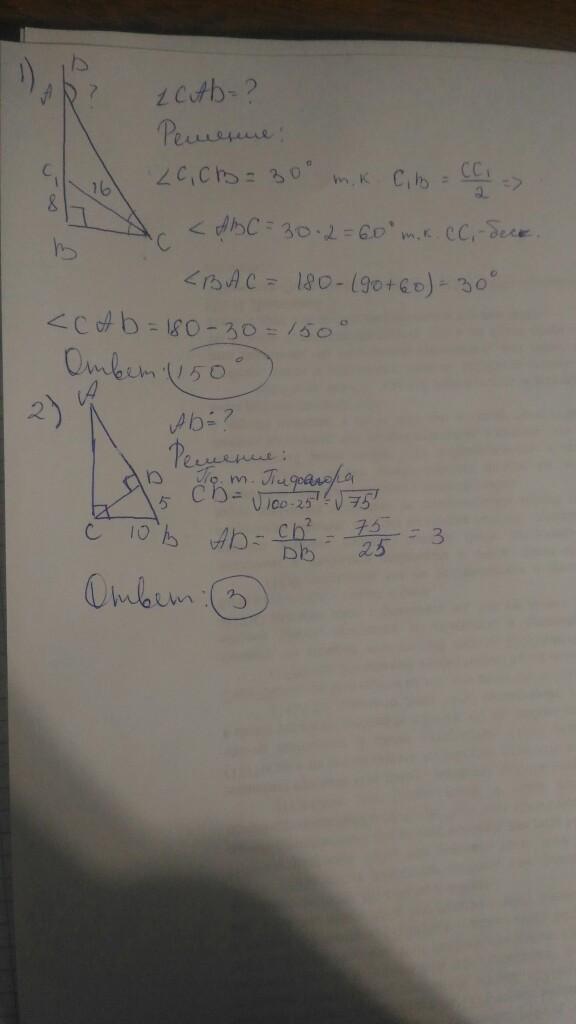 1)
D
A ?
∠CAD = ?
Решение:
C₁ 16
8
B C
∠C₁CB = 30° т.к. C₁B = CC₁/2 =>
∠ABC = 30·2 = 60° т.к. CC₁-бисс.
∠BAC = 180-(90+60) = 30°
∠CAD = 180-30 = 150°
Ответ: 150°
2)
A
AD = ?
Решение:
По т. Пифагора
D
5
C 10 B
CD = √100-25 = √75
AD = CD²/DB = 75/25 = 3
Ответ: 3